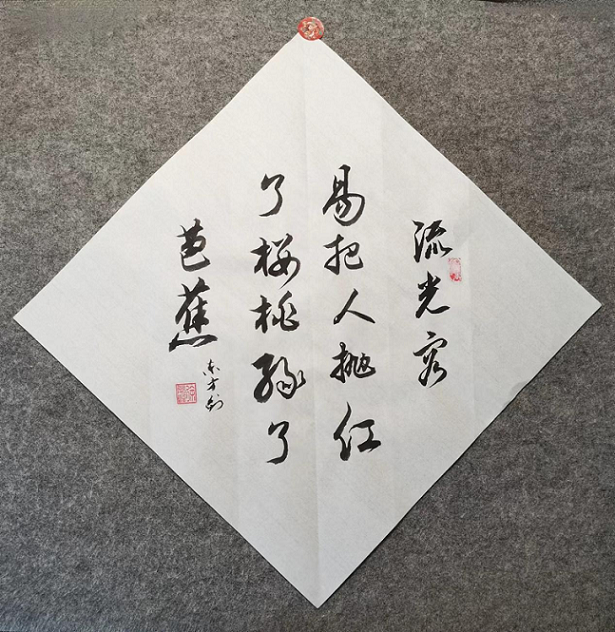 流光容
易把人抛红
了樱桃绿了
芭蕉
东方